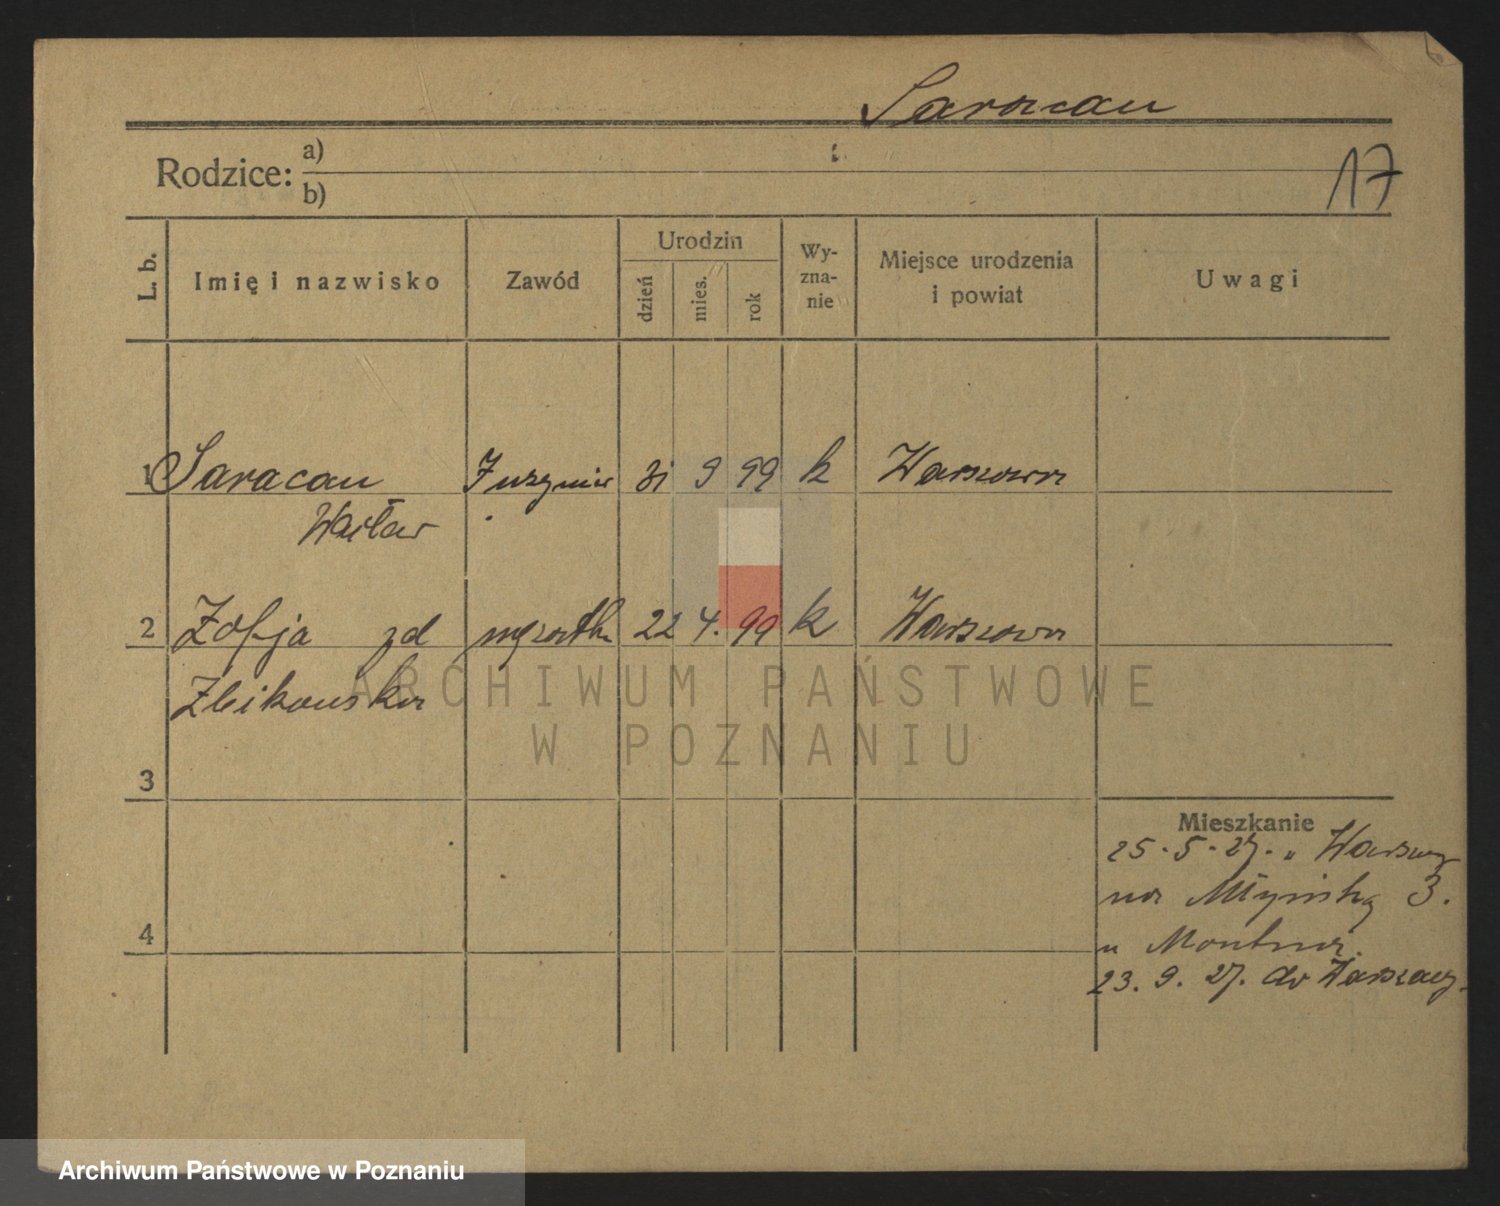 Saracan
Rodzice: a)
b)
17
L. b. Imię i nazwisko Zawód Urodzin dzień mies. rok Wyznanie Miejsce urodzenia i powiat Uwagi
1 Saracan Inżynier 31 9 99 k Warszawa
Wacław
2 Zofja zd mężatka 22 4. 99 k Warszawa
Zbikowska
ARCHIWUM PAŃSTWOWE
W POZNANIU
3
Mieszkanie
25.5.27. Warszawy
na Młyńską 3.
4
u
23.9.27. do Warszawy.
Archiwum Państwowe w Poznaniu